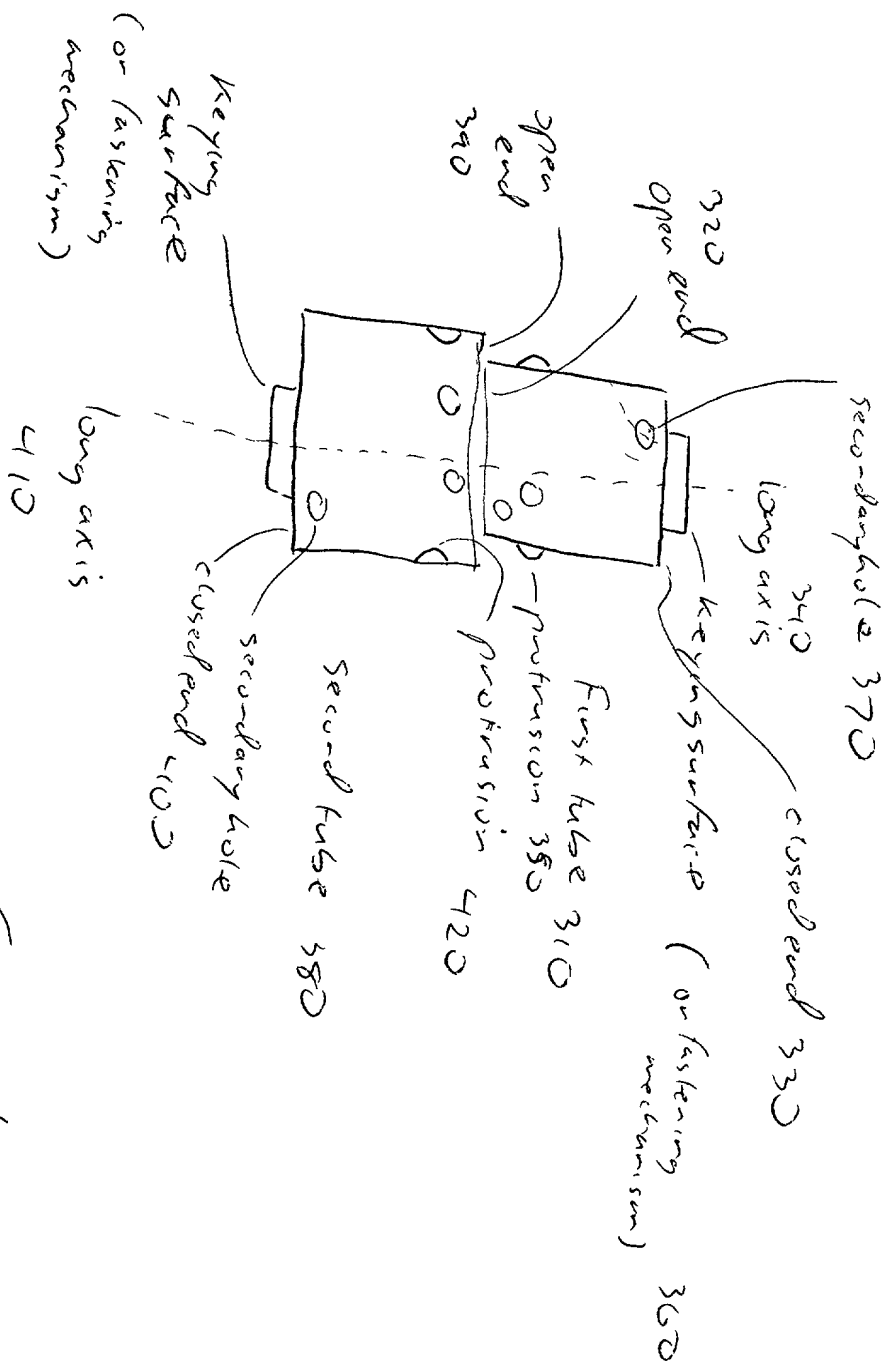 secondary hole 370
closed end 330
340
long axis
keying surface (or fastening
mechanism)
360
First tube 310
protrusion 350
protrusion 420
Second tube 380
secondary hole
closed end 400
320
open end
open
end
390
keying
surface
(or fastening
mechanism)
long axis
410